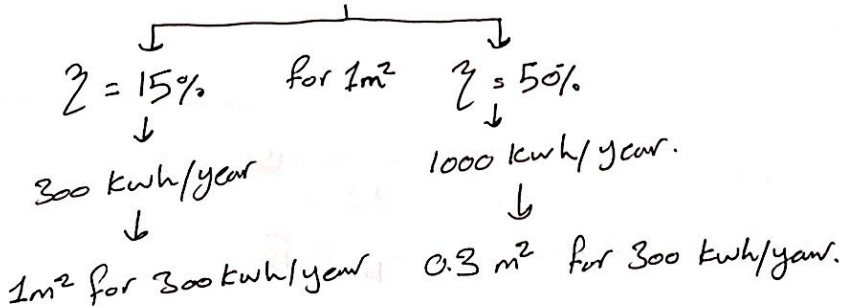 η = 15% for 1m² η = 50%
300 kwh/year 1000 kwh/year.
1m² for 300 kwh/year 0.3 m² for 300 kwh/year.